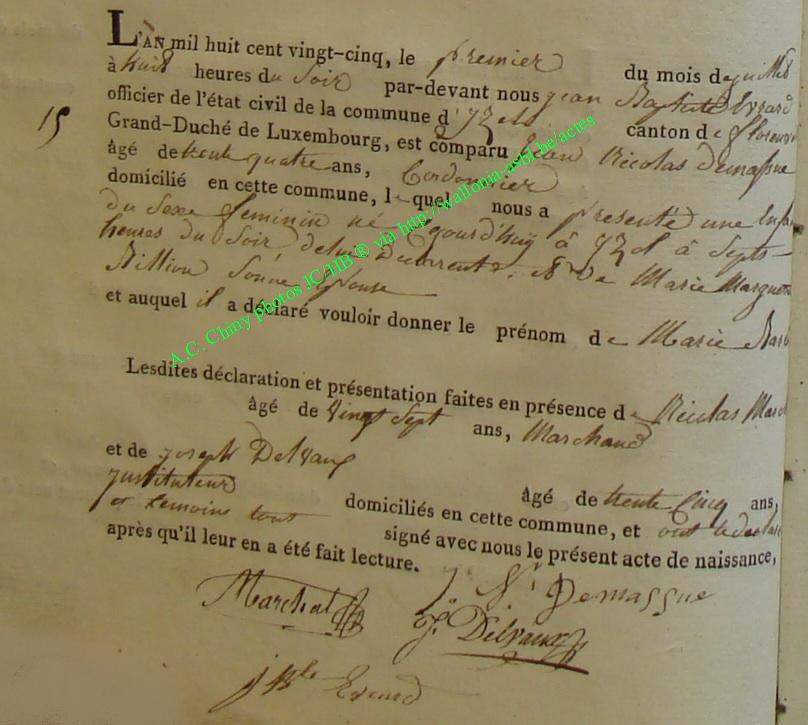 L'AN mil huit cent vingt-cinq, le premier du mois de juillet
à huit heures du soir par-devant nous jean Baptiste Evrard
officier de l'état civil de la commune d'Yzel canton de florenv
15
Grand-Duché de Luxembourg, est comparu Jean Nicolas Demassue
âgé de trente quatre ans, Cordonnier
domicilié en cette commune, lequel nous a présenté une Enfa
du Sexe feminin né ajourd'huy à YZel à Septs
heures du Soir de lui Declarent, & De Marie Margueri
Sonne Epouse
et auquel il a déclaré vouloir donner le prénom de Marie Barb
Lesdites déclaration et présentation faites en présence de Nicolas March
âgé de vingt Sept ans, Marchand
et de joseph Delvaux
jnstituteur âgé de trente Cinq ans,
et temoins tout domiciliés en cette commune, et ont
signé avec nous le présent acte de naissance,
après qu'il leur en a été fait lecture.
Marchal J. N. Demassue
J. Delvaux
j Bte Evrard
A.C. Chiny photos JC/HB ® via http://wallonia-asbl.be/actes